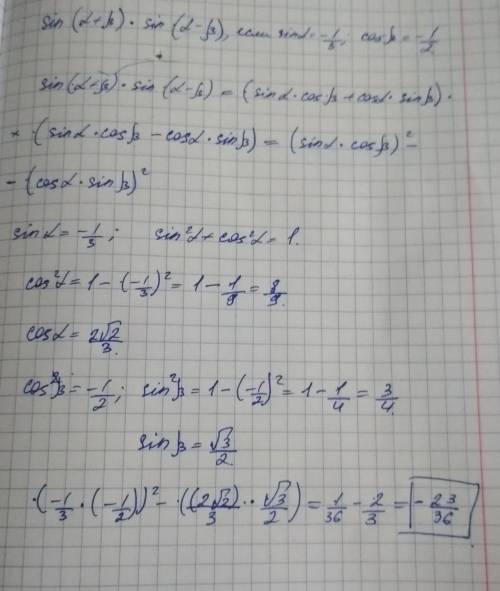 sin(α+β) · sin(α-β), если sinα = -1/3; cosβ = -1/2
sin(α+β) · sin(α-β) = (sinα · cosβ + cosα · sinβ) ·
× (sinα · cosβ - cosα · sinβ) = (sinα · cosβ)² -
- (cosα · sinβ)²
sinα = -1/3; sin²α + cos²α = 1.
cos²α = 1 - (-1/3)² = 1 - 1/9 = 8/9.
cosα = 2√2/3.
cos²β = -1/2; sin²β = 1 - (-1/2)² = 1 - 1/4 = 3/4.
sinβ = √3/2.
· (-1/3 · (-1/2))² - · ((2√2)/3 · · √3/2) = 1/36 - 2/3 = -23/36